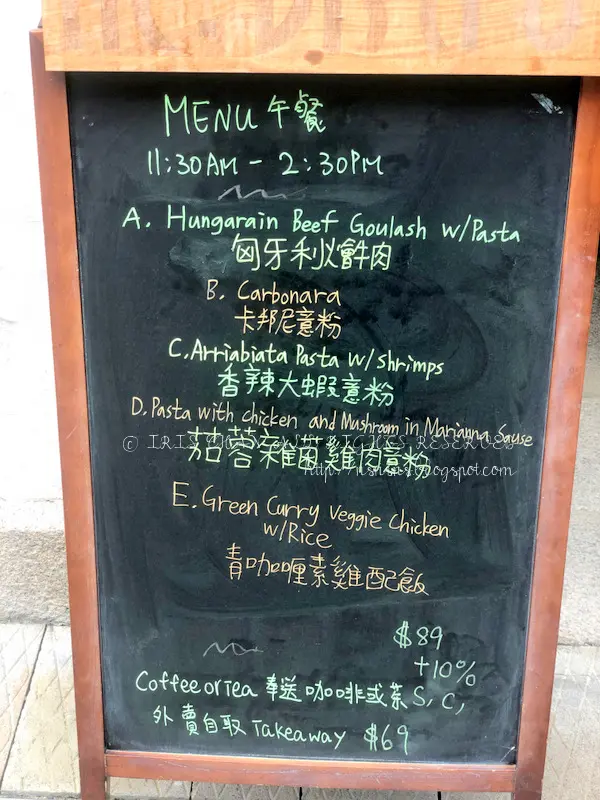 MENU 午餐
11:30AM - 2:30PM
A. Hungarain Beef Goulash w/Pasta
匈牙利燴牛肉
B. Carbonara
卡邦尼意粉
C. Arriabiata Pasta w/shrimps
香辣大蝦意粉
D. Pasta with chicken and Mushroom in Marianna Sause
© IRIS RIGHTS RESERVED
茄蓉雜菌雞肉意粉
E. Green Curry Veggie Chicken
w/Rice
青咖喱素雞配飯
$89
+10%
Coffee or Tea 奉送咖啡或茶 S, C,
外賣自取 Takeaway $69